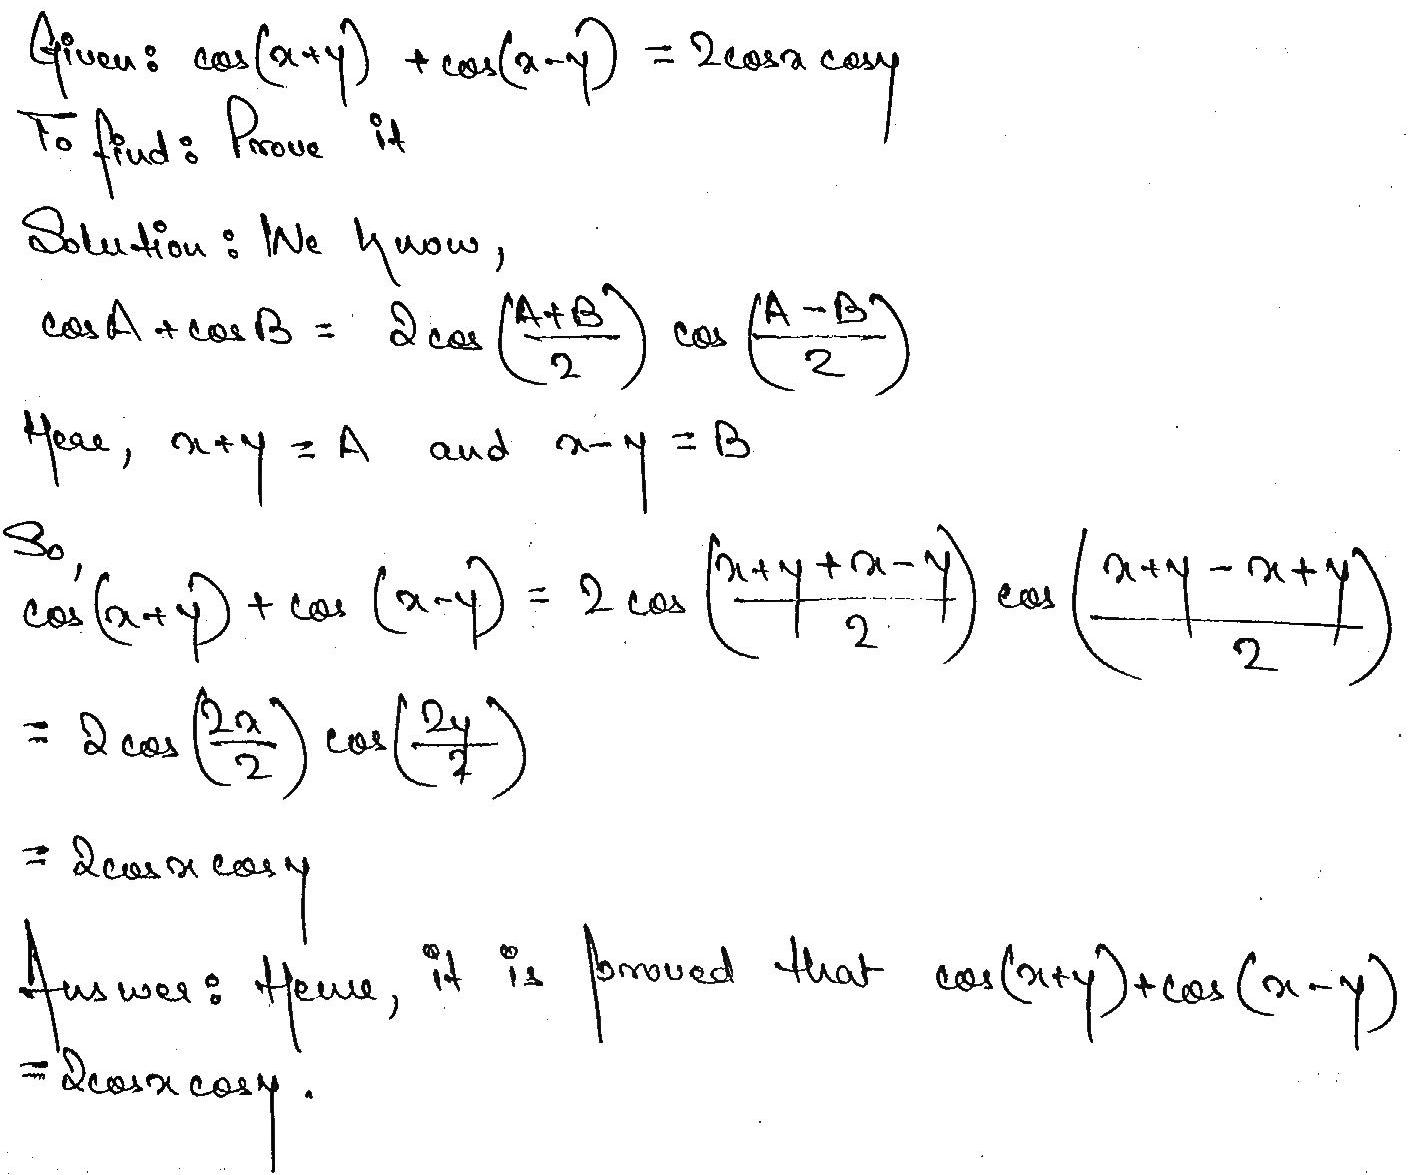 Given: cos(x+y) + cos(x-y) = 2cosx cosy
To find: Prove it
Solution: We know,
cosA + cosB = 2cos((A+B)/2) cos((A-B)/2)
Here, x+y = A and x-y = B
So,
cos(x+y) + cos(x-y) = 2cos((x+y+x-y)/2) cos((x+y-x+y)/2)
= 2cos(2x/2) cos(2y/2)
= 2cosx cosy
Answer: Hence, it is proved that cos(x+y)+cos(x-y)
= 2cosx cosy.